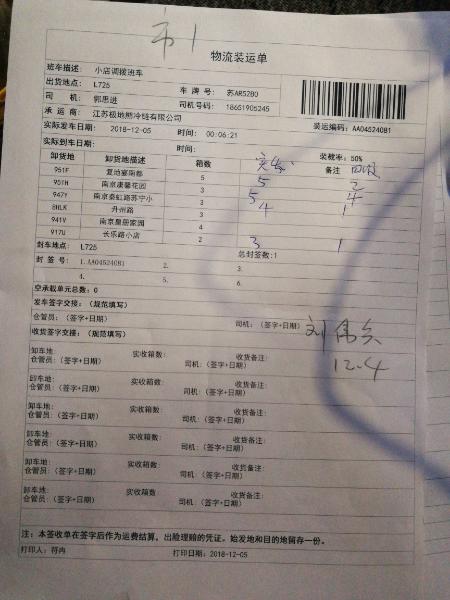 市1
物流装运单
班车描述: 小店调拨班车
出货地点: L725 车 牌 号: 苏AR5280
司 机: 郭思进 司机号码: 18651905245
承 运 商: 江苏极地熊冷链有限公司 装运编码: AA04524081
实际发车日期: 2018-12-05 时间: 00:06:21
实际到车日期: 时间: 装载率: 50%
卸货地 卸货地描述 箱数 实发 备注 回收
951F 复地宴南都 5 5 2
951H 南京康馨花园 3 5 4
947Y 南京泰虹路苏宁小 3 4 1
8HLK 丹州路 3
941V 南京皇册家园 4
917U 长乐路小店 2 3 1
封车地点: L725 总封签数:1
封 签 号: 1.AA04524081 2. 3.
4. 5. 6.
空承载单元总数: 0
发车签字交接: (规范填写)
仓管员: (签字+日期) 司机: (签字+日期) 刘伟兵
收货签字交接: (规范填写) 12.4
卸车地: 实收箱数: 收货备注:
仓管员: (签字+日期) 司机: (签字+日期)
卸车地: 实收箱数: 收货备注:
仓管员: (签字+日期) 司机: (签字+日期)
卸车地: 实收箱数: 收货备注:
仓管员: (签字+日期) 司机: (签字+日期)
卸车地: 实收箱数: 收货备注:
仓管员: (签字+日期) 司机: (签字+日期)
卸车地: 实收箱数: 收货备注:
仓管员: (签字+日期) 司机: (签字+日期)
卸车地: 实收箱数: 收货备注:
仓管员: (签字+日期) 司机: (签字+日期)
注: 本签收单在签字后作为运费结算、出险理赔的凭证。始发地和目的地留存一份。
打印人: 符冉 打印日期: 2018-12-05